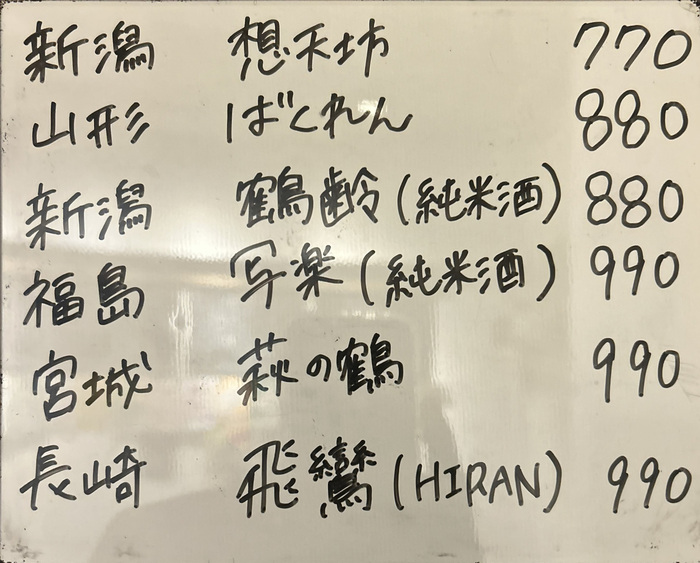 新潟 想天坊 770
山形 ばくれん 880
新潟 鶴齢(純米酒) 880
福島 写楽(純米酒) 990
宮城 萩の鶴 990
長崎 飛鸞(HIRAN) 990